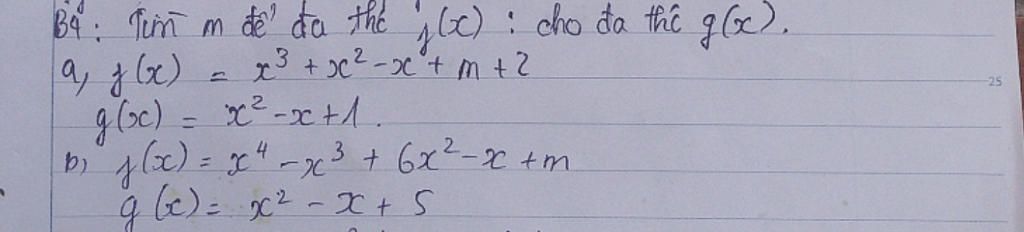 B4: Tìm m để đa thc f(x) : cho đa thc g(x).
a, f(x) = x³ + x² - x + m + 2
g(x) = x² - x + 1.
b) f(x) = x⁴ - x³ + 6x² - x + m
g(x) = x² - x + 5
25